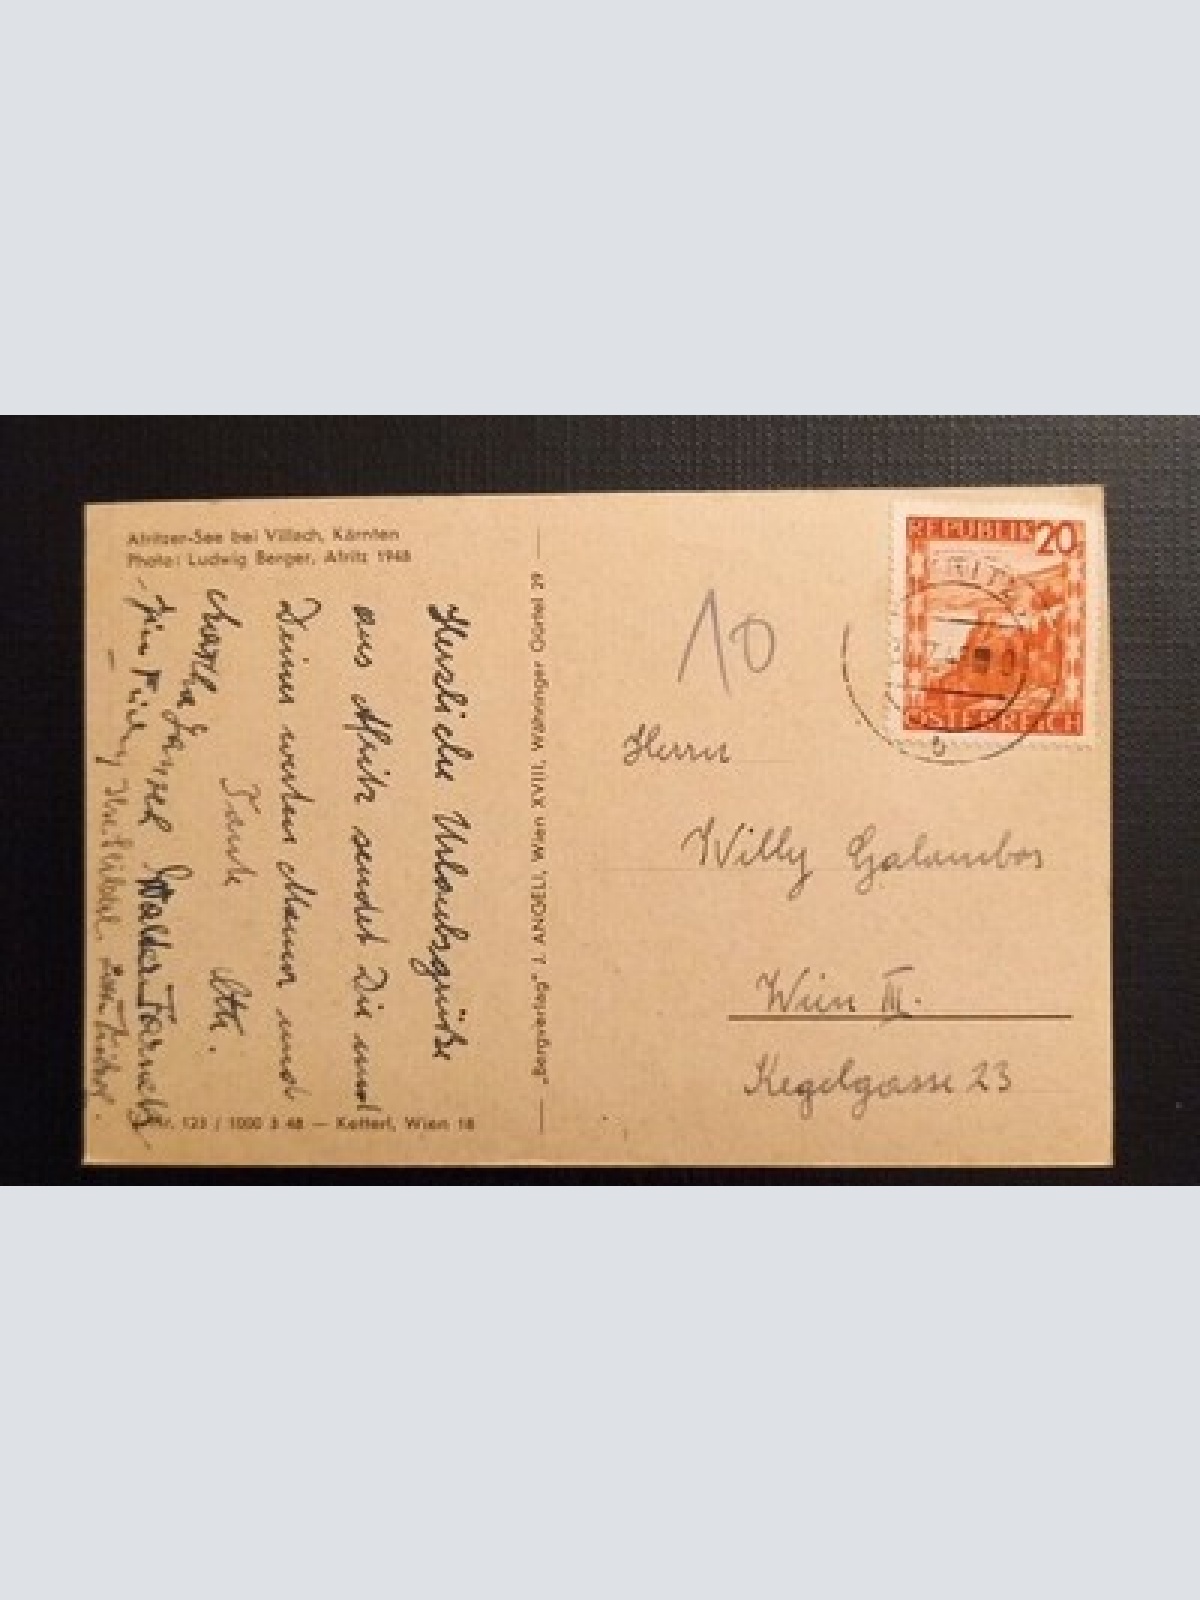 Afritzer-See bei Villach, Kärnten
Photo: Ludwig Berger, Afritz 1948
Herzliche Urlaubsgrüße
aus Afritz sendet Dir und
Deiner werten Mama und
Tante Otti.
Walter
Nr. 123 / 1000 3 48 — Ketterl, Wien 18
„Bergverlag" J. ANGELI, Wien XVIII, Währinger Gürtel 39
REPUBLIK 20
ÖSTERREICH
b
10
Herrn
Willy Galambos
Wien III.
Kegelgasse 23